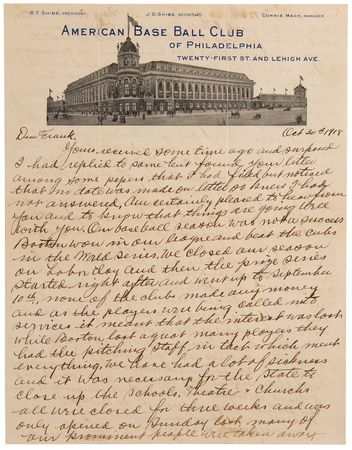 B.F. SHIBE, PRESIDENT. J.D. SHIBE, SECRETARY CONNIE MACK, MANAGER
AMERICAN BASE BALL CLUB
OF PHILADELPHIA
TWENTY-FIRST ST. AND LEHIGH AVE.
Oct 30th 1918
Dear Frank.
Yours received some time ago and supposed
I had replied to same but found your letter
among some papers that I had filed but noticed
that no date was made on letter so knew I had
not answered, Am certainly pleased to hear from
you and to know that things are going well
with you. Our baseball season was not a success
Boston won in our league and beat the cubs
in the World Series. We closed our season
on Labor Day and then the prize series
started right after and went up to September
10th, none of the clubs made any money
and as the players were being called into
service it meant that the interest was lost
while Boston lost a great many players they
had the pitching staff in tact which ment
everything, We have had a lot of sickness
and it was necessary for the State to
close up the Schools, Theatre & Churchs
all were closed for three weeks and was
only opened on Sunday last, many of
our prominent people were taken away